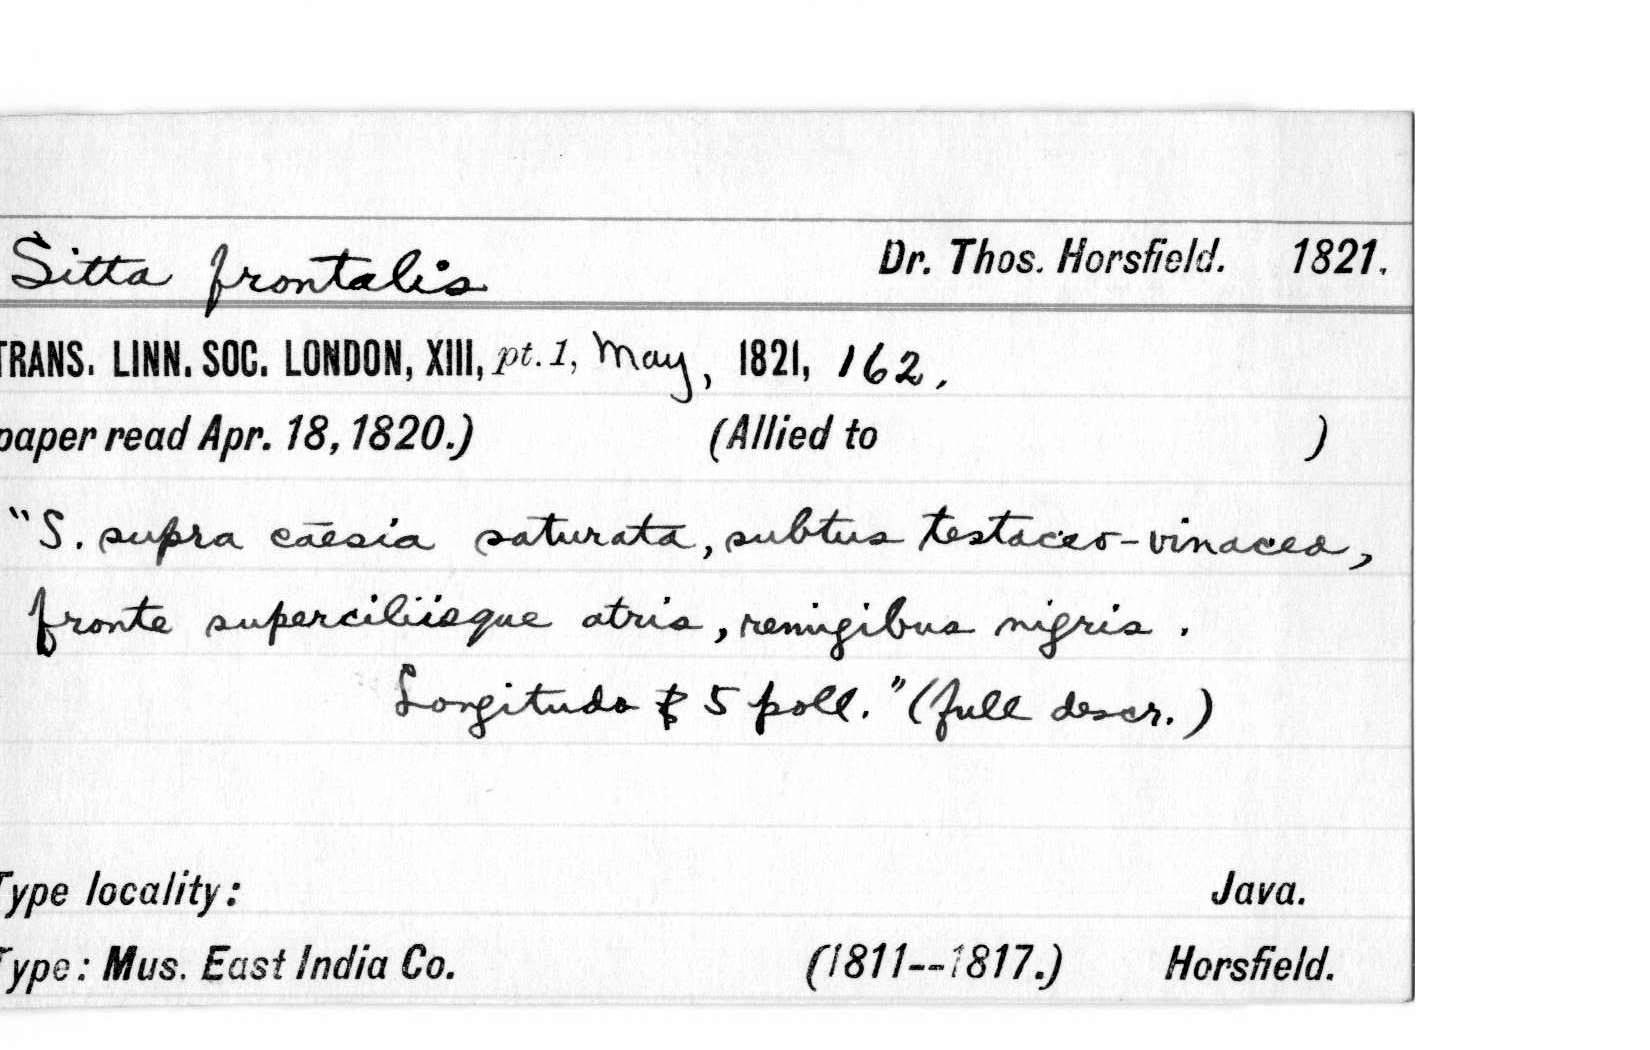 Sitta frontalis Dr. Thos. Horsfield. 1821.
TRANS. LINN. SOC. LONDON, XIII, pt. 1, May, 1821, 162.
paper read Apr. 18, 1820.) (Allied to )
"S. supra caesia saturata, subtus testaceo-vinacea,
fronte superciliisque atris, remigibus nigris.
Longitudo 5 poll." (full descr.)
Type locality: Java.
Type: Mus. East India Co. (1811--1817.) Horsfield.